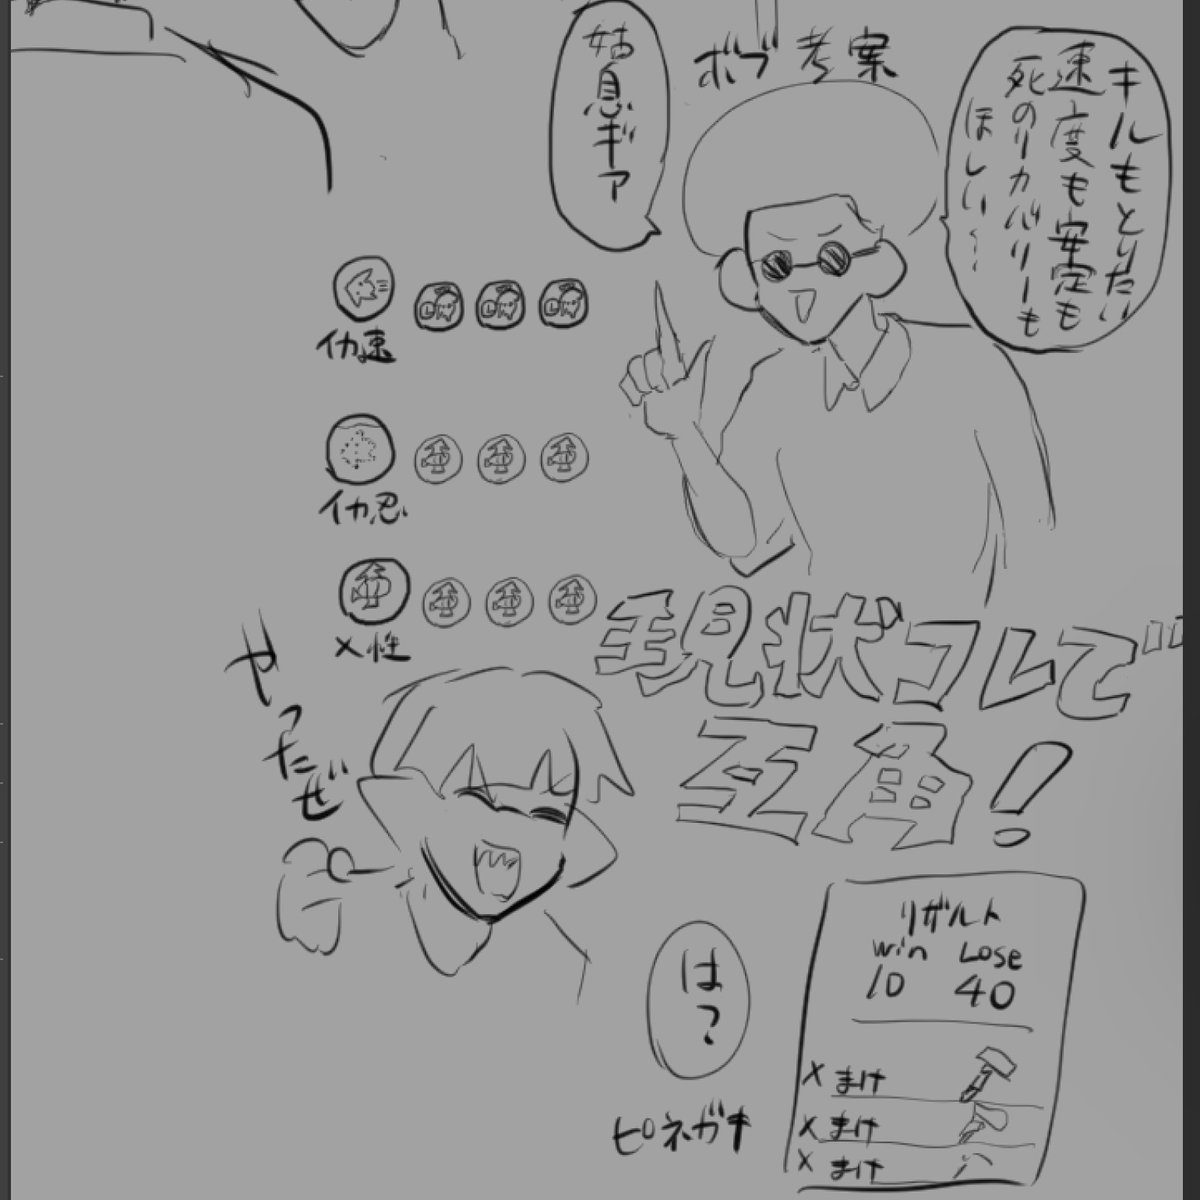 キルもとりたい
速度も安定も
死のリカバリーも
ほしい…
ボブ考案
姑息ギア
イカ速
イカ忍
メ性
現状コレで
互角!
やったぜ
は?
ピネガキ
リザルト
Win Lose
10 40
× まけ
× まけ
× まけ